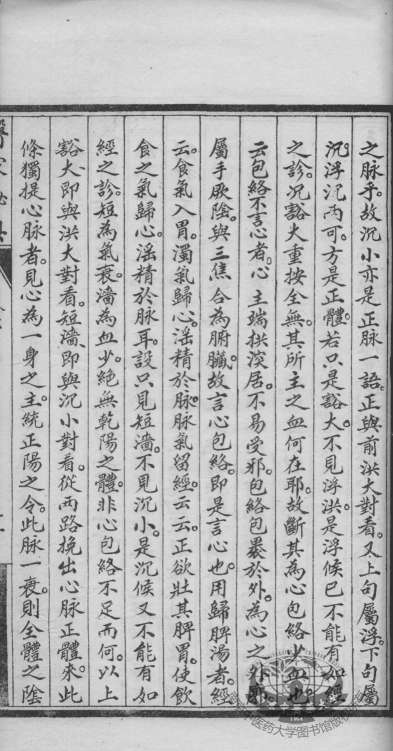 之脉乎。故沉小亦是正脉一語。正與前洪大對看。又上句屬浮。下句屬
沉。浮沉兩可。方是正體。若只是豁大。不見浮洪。是浮候已不能有如經
之診。况豁大重按全無。其所主之血何在耶。故斷其為心包絡少血也。
云包絡不言心者。心主端拱深居。不易受邪。包絡包裹於外。為心之外
屬手厥陰。與三焦合為腑臟。故言心包絡。即是言心也。用歸脾湯者。經
云。食氣入胃。濁氣歸心。淫精於脉。脉氣留經。云云。正欲壯其脾胃。使飲
食之氣歸心。淫精於脉耳。設只見短濇。不見沉小。是沉候又不能有如
經之診。短為氣衰。濇為血少。絕無乾陽之體。非心包絡不足而何。以上
豁大即與洪大對看。短濇即與沉小對看。從兩路挽出心脉正體來。此
條獨提心脉者。見心為一身之主。統正陽之令。此脉一衰。則全體之陰